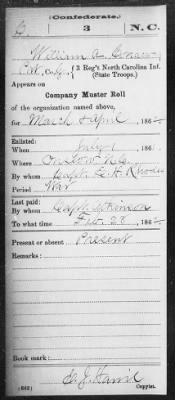 (Confederate.)
3 N. C.
William A.
Pvt, Co. , 3 Reg't North Carolina Inf.
(State Troops.)
Appears on
Company Muster Roll
of the organization named above,
for March & April, 186
Enlisted:
When July 1, 186
Where Onslow N.C.
By whom Capt. E. H. Rhodes
Period War
Last paid:
By whom Capt.
To what time Feb 28, 186
Present or absent Present
Remarks:
Book mark:
(642)
Copyist.